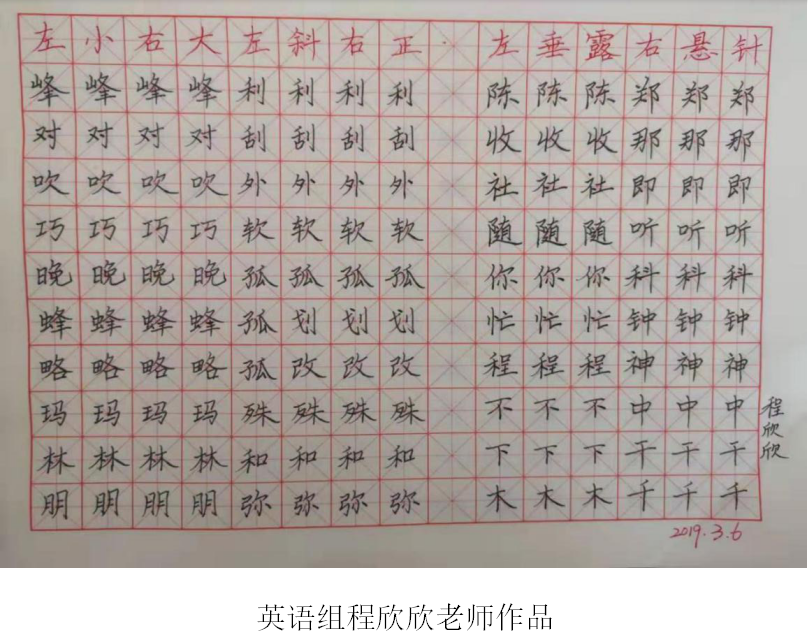 左小右大左斜右正·左垂露右悬针
峰峰峰峰利利利利陈陈陈郑郑郑
对对对对刮刮刮刮收收收那那那
吹吹吹吹外外外外社社社即即即
巧巧巧巧软软软软随随随听听听
晚晚晚晚孤孤孤孤你你你科科科
蜂蜂蜂蜂孤划划划忙忙忙钟钟钟
略略略略孤改改改程程程神神神
玛玛玛玛殊殊殊殊不不不中中中
林林林林和和和和下下下干干干
朋朋朋朋弥弥弥弥木木木千千千
程欣欣
2019.3.6
英语组程欣欣老师作品